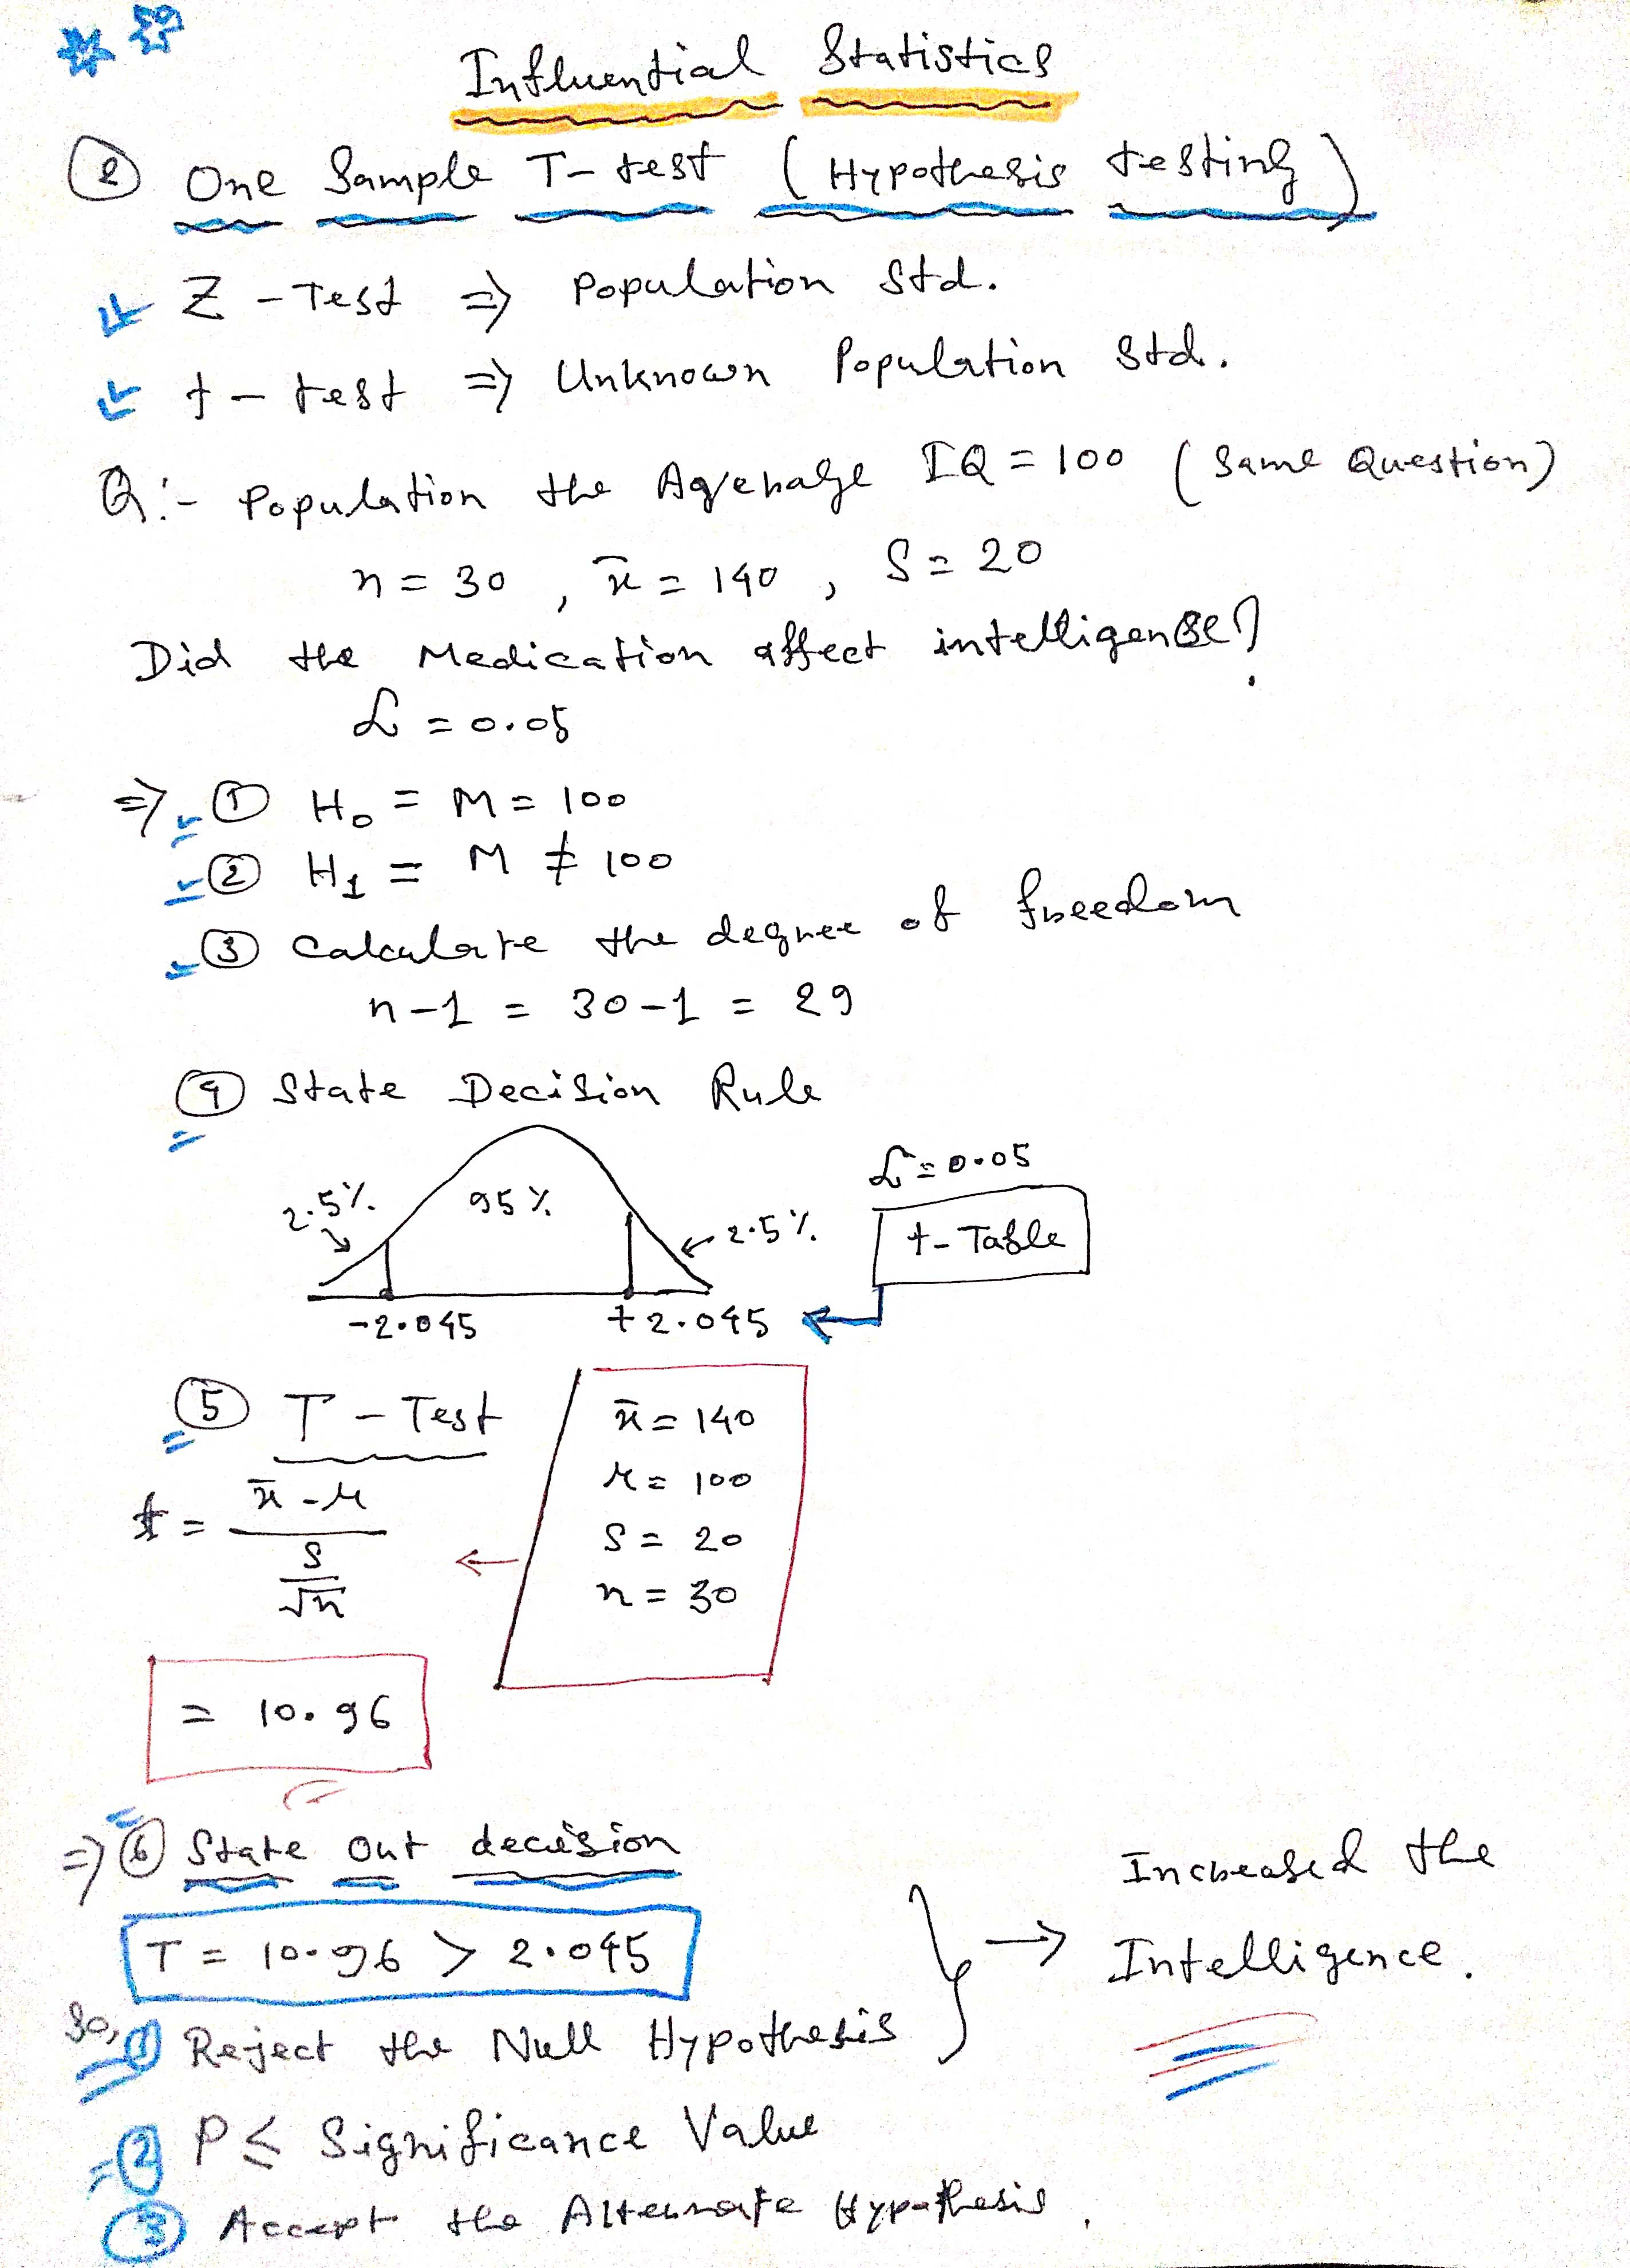 Influential Statistics
② One Sample T-test (Hypothesis testing)
Z - Test ⇒ Population Std.
t - test ⇒ Unknown Population Std.
Q:- Population the Agerage IQ = 100 (Same Question)
n = 30 , x̄ = 140 , S = 20
Did the Medication affect intelligense?
α = 0.05
⇒ ① H₀ = M = 100
② H₁ = M ≠ 100
③ Calculate the degree of freedom
n-1 = 30-1 = 29
④ State Decision Rule
α = 0.05
2.5% 95% 2.5% t-Table
-2.045 +2.045
⑤ T - Test
x̄ = 140
μ = 100
S = 20
n = 30
t = (x̄ - μ) / (S/√n)
= 10.96
⇒ ⑥ State Out decision
T = 10.96 > 2.045
So, ① Reject the Null Hypothesis
→ Increased the
Intelligence.
② P ≤ Significance Value
③ Accept the Alternate Hypothesis.